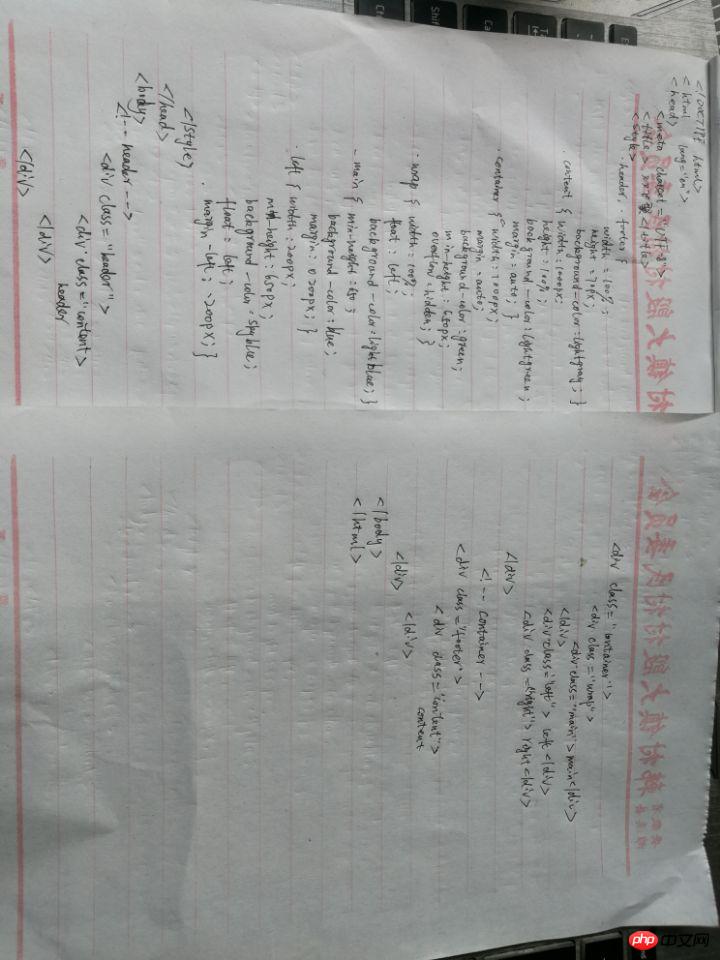 <!DOCTYPE html>
< html lang="en">
< head>
<meta charset =
<title> </title>
<style>
.header, .footer {
width = 100% ;
height = 70px ;
background-color = lightgray ; }
.content { width: 1000px ;
height : 100% ;
background-color : lightgreen ;
margin = auto ; }
.container { width : 1000px ;
margin = auto ;
background-color : green ;
min-height : 650px ;
overflow : hidden ; }
.wrap { width : 100% ;
float : left ;
background-color : lightblue ; }
.main { min-height : 650 ;
background-color : blue ;
margin : 0 200px ; }
.left { width : 200px ;
min-height : 650px ;
background-color : skyblue ;
float : left ;
margin-left : -200px ; }
</style>
</head>
<body>
<!-- header -->
<div class="header">
<div class="content">
header
</div>
</div>
<div class="container">
<div class="wrap">
<div class="main"> main</div>
</div>
<div class="left"> left </div>
<div class="right"> right </div>
</div>
<!-- container -->
<div class="footer">
<div class="content">
content
</div>
</div>
</body>
</html>
php 中文网